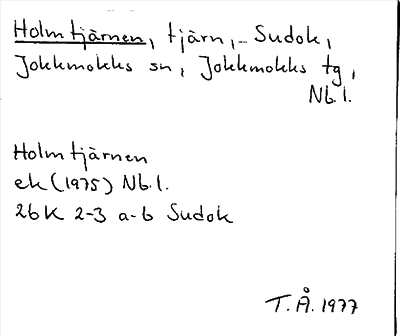 Holmtjärnen, tjärn, Sudok,
Jokkmokks sn, Jokkmokks tg,
Nb.l.
Holmtjärnen
ek (1975) Nb.l.
26K 2-3 a-b Sudok
T.Å. 1977